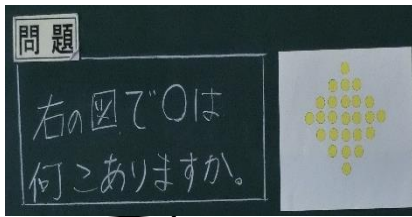 問題
右の図で○は
何こありますか。